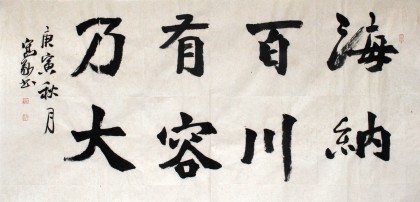 海納
百川
有容
乃大
庚寅秋月